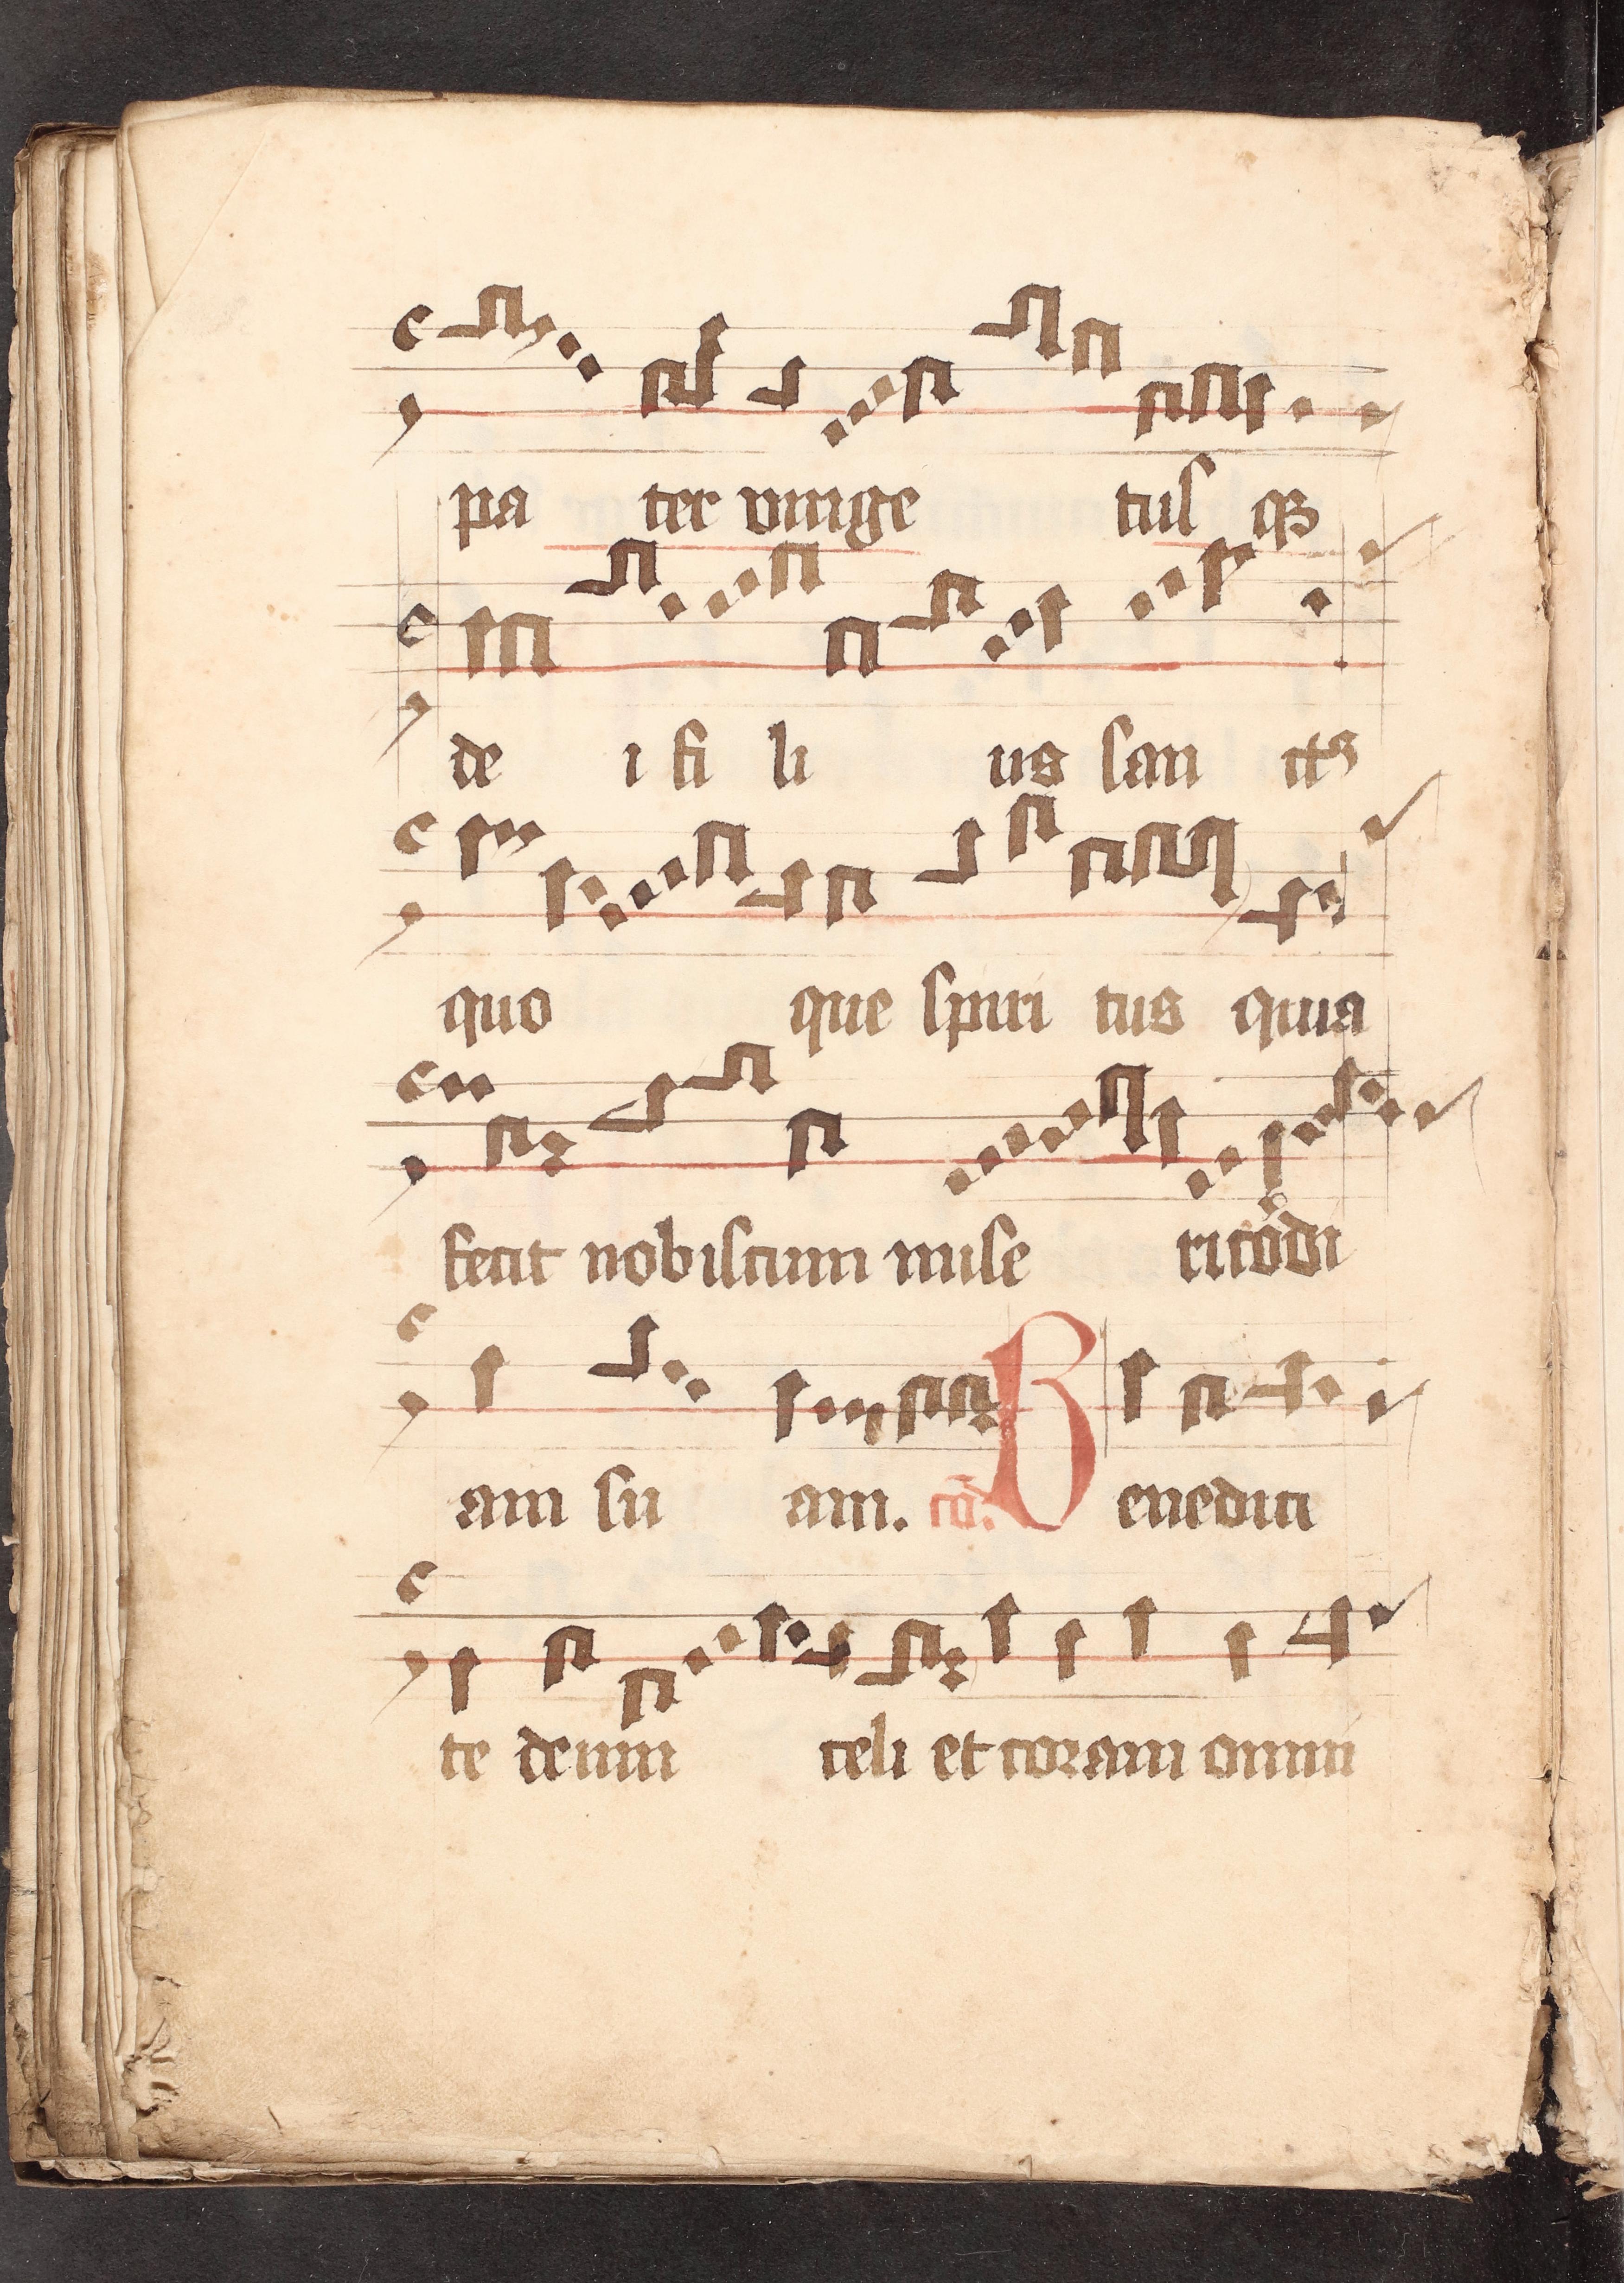 pa ter vnige tus qꝫ
de i fi li us san cts
quo que spiri tus quia
fecit nobiscum mise ricõdi
am su am. cõ. Benedici
te deum celi et coram omni